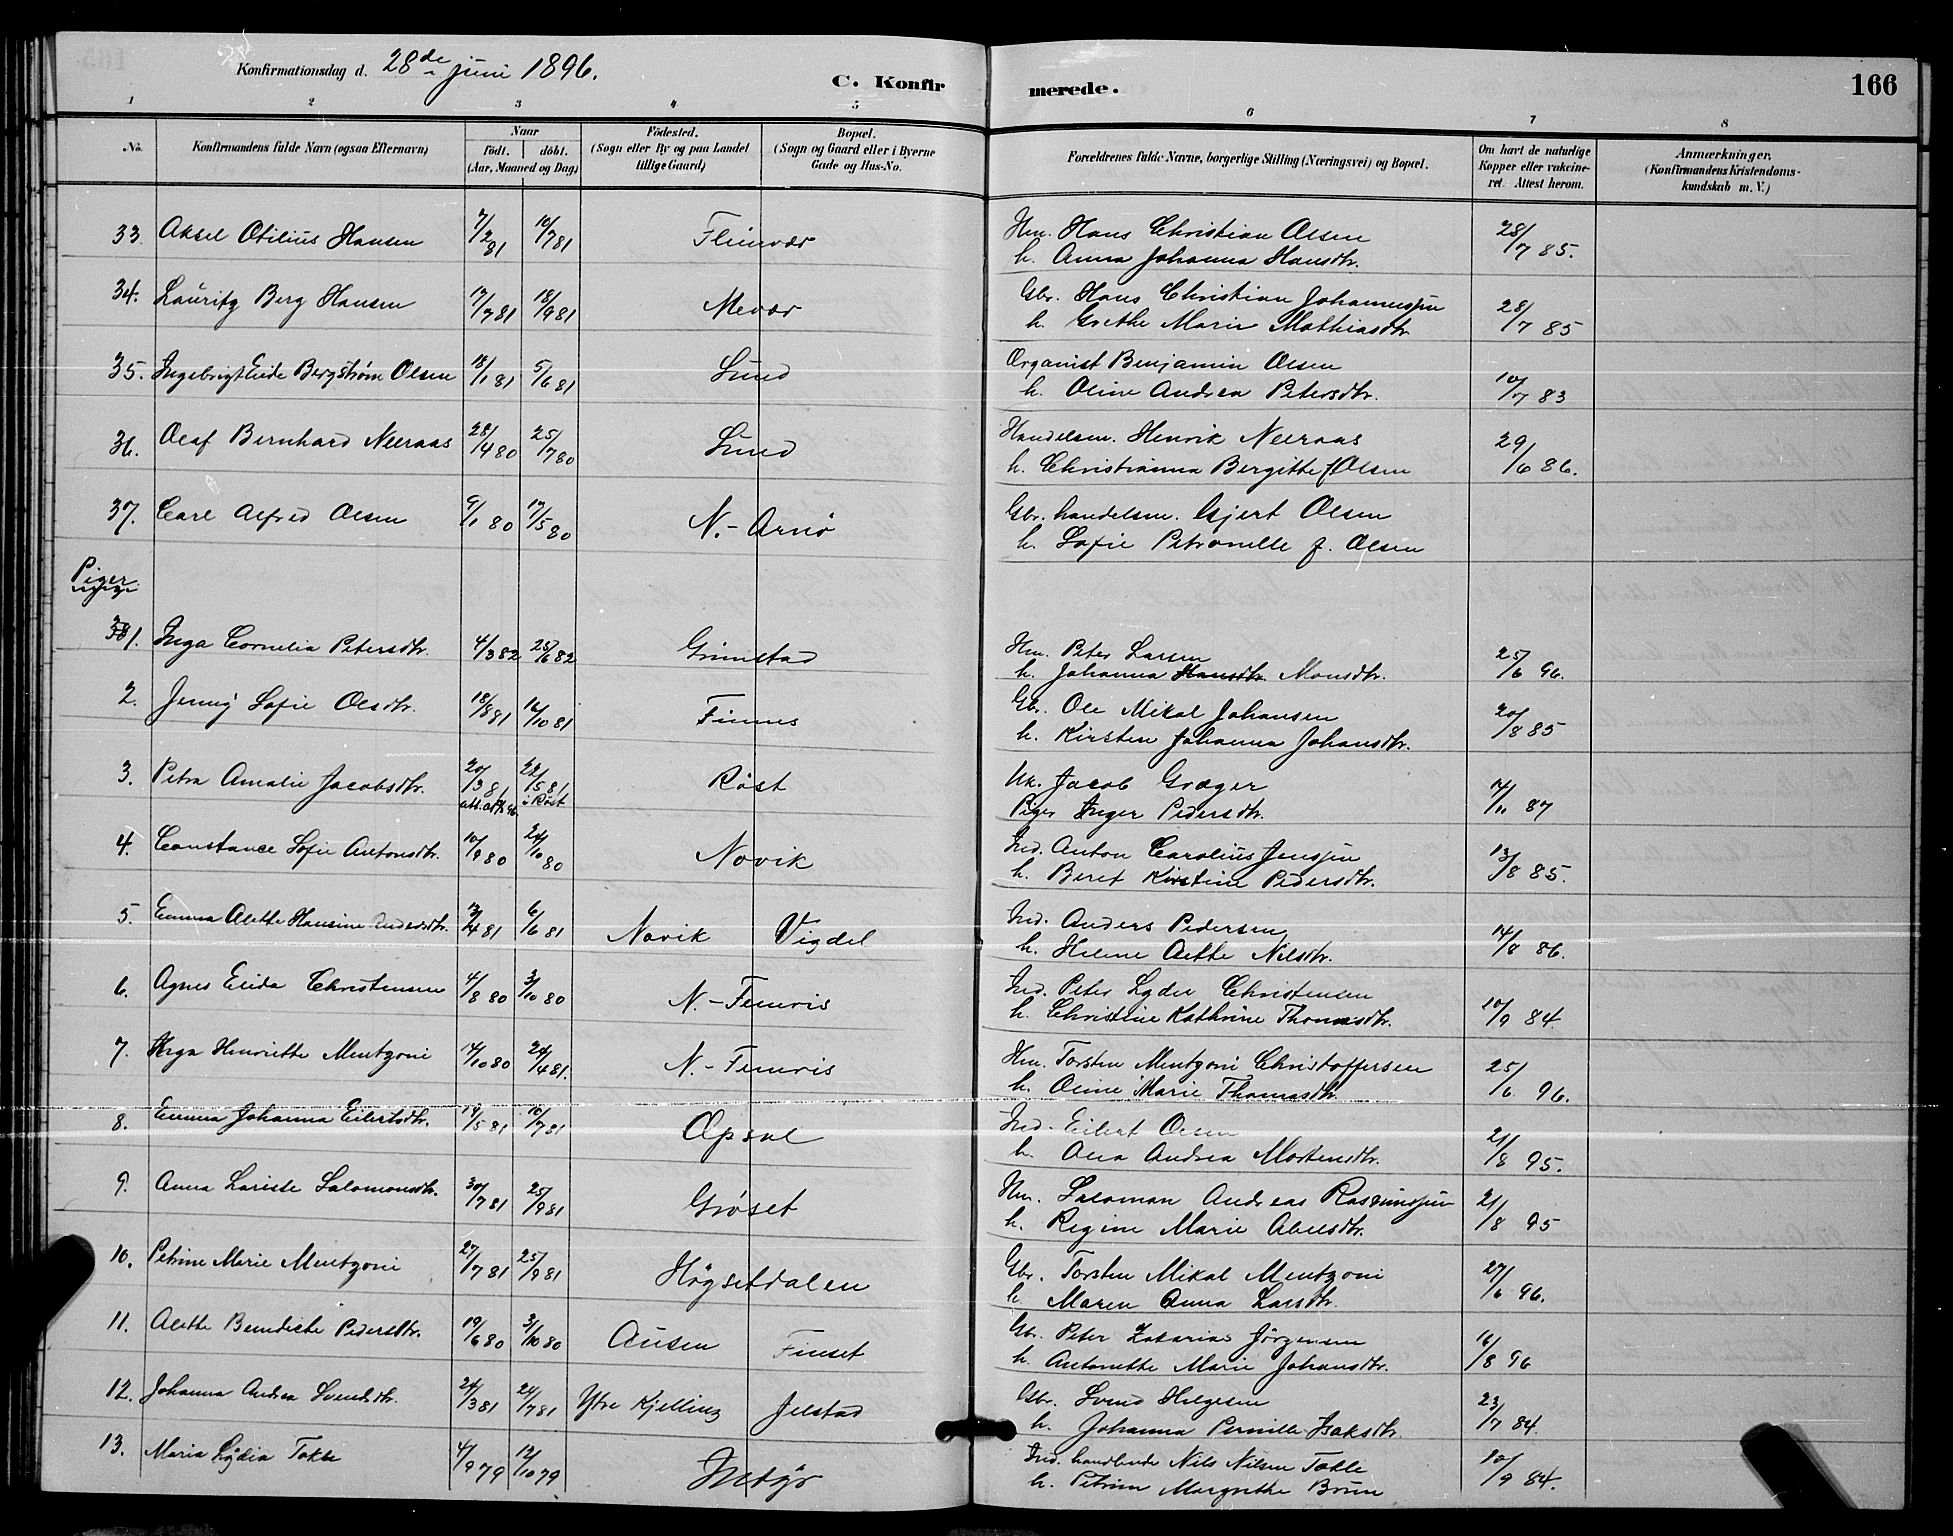 Konfirmationsdag d. 28de juni 1896.
C. Konfirmerede.
166
1 2 3 4 5 6 7 8
No. Konfirmandens fulde Navn (ogsaa Efternavn)
Naar
Födt. döbt.
(Aar, Maaned og Dag)
Födested.
(Sogn eller By og paa Landet
tillige Gaard)
Bopæl.
(Sogn og Gaard eller i Byerne
Gade og Hus-No.
Forældrenes fulde Navne, borgerlige Stilling (Næringsvei) og Bopæl.
Om havt de naturlige
Kopper eller vakcine-
ret. Attest herom.
Anmærkninger,
(Konfirmandens Kristendoms-
kundskab m. V.)
33. Aksel Otilius Hansen 7/2 81 10/7 81 Fleinvær Hm. Hans Christian Olsen 28/7 85.
h. Anna Johanna Hansdtr.
34. Lauritz Berg Hansen 17/7 81 18/9 81 Mevær Gbr. Hans Christian Johannessen 28/7 85
h. Grethe Marie Mathiasdtr.
35. Ingebrigt Eide Bergstrøm Olsen 18/1 81 5/6 81 Lund Organist Benjamin Olsen
h. Oline Andrea Petersdtr. 10/7 83
36. Olaf Bernhard Neeraas 28/4 80 25/7 80 Lund Handelsm. Henrik Neeraas 29/6 86.
h. Christianna Bergitte f. Olsen
37. Carl Alfred Olsen 9/1 80 17/5 80 N.-Arnö Gbr. handelsm. Gjert Olsen
h. Sofie Petronelle f. Olsen
Piger
1. Inga Cornelia Petersdtr. 4/3 82 25/6 82 Grimstad Hm. Peter Larsen 25/6 96.
h. Johanna Hansdtr. Monsdtr.
2. Jenny Sofie Olsdtr. 18/8 81 16/10 81 Finnes Gbr. Ole Mikal Johansen 20/8 85
h. Kirsten Johanna Johansdtr.
3. Petra Amalie Jacobsdtr. 20/3 81 22/5 81 i Röst Röst Uk. Jacob Græger 14/11 87
Pige Inger Pedersdtr.
4. Constance Sofie Antonsdtr. 10/9 80 24/10 80 Novik Ind. Anton Carolius Jenssen 13/8 85.
h. Beret Kirstine Pedersdtr.
5. Emma Alette Hansine Andersdtr. 13/4 81 6/6 81 Novik Vigdel Ind. Anders Pedersen 14/8 86.
h. Helene Aette Nilsdtr.
6. Agnes Elida Christensen 4/8 80 3/10 80 N.-Femris Ind. Peter Lyder Christensen 10/9 84
h. Christine Kathrine Thomasdtr.
7. Inga Henriette Mentzoni 14/10 80 24/4 81. N.-Femris Hm. Torsten Mentzoni Christoffersen 25/6 96.
h. Oline Marie Thomasdtr.
8. Emma Johanna Eilertsdtr. 14/5 81 10/7 81 Opsal Ind. Eilert Olsen 21/8 95.
h. Ana Andrea Mortensdtr.
9. Anna Lovise Salomonsdtr. 30/7 81 25/9 81 Gröset Hm. Salomon Andreas Rasmussen 21/8 95
h. Regine Marie Abelsdtr.
10. Petrine Marie Mentzoni 27/7 81 25/9 81 Högsetdalen Gbr. Torsten Mikal Mentzoni 27/6 96.
h. Maren Anna Larsdtr.
11. Alette Benedicte Pedersdtr. 19/6 80 3/10 80 Ausen Finset Gbr. Peter Zakarias Jörgensen 16/8 96
h. Antonette Marie Johansdtr.
12. Johanna Andrea Svendsdtr. 24/3 81 24/7 81 Ytre Kjelling Jelstad Gbr. Svend Helgesen 23/7 84.
h. Johanna Pernille Isaksdtr.
13. Maria Lydia Tokle 4/9 79 12/10 79 Inddyr Ind. handlende Nils Nilsen Tokle 10/9 84.
h. Petrine Margrethe Brun